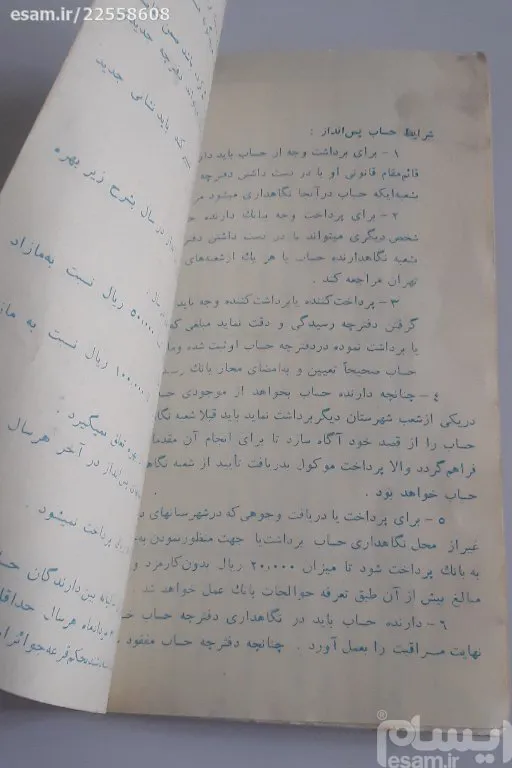 esam.ir/22558608
شرایط حساب پس‌انداز :
۱- برای برداشت وجه از حساب باید
قائم‌مقام قانونی او با در دست داشتن دفترچه
شعبه‌ایکه حساب در آنجا نگاهداری میشود
۲- برای پرداخت وجه بانک دارنده
شخص دیگری میتواند با در دست داشتن
شعبه نگاهدارنده حساب یا هر یک از شعبه‌های
تهران مراجعه کند .
۳- پرداخت‌کننده یا برداشت‌کننده وجه باید
گرفتن دفترچه رسیدگی و دقت نماید مبلغی که
یا برداشت نموده در دفترچه حساب او ثبت شده
حساب صحیحاً تعیین و به‌امضای مجاز بانک
۴- چنانچه دارنده حساب بخواهد از موجودی
در یکی از شعب شهرستان دیگر برداشت نماید باید قبلا شعبه
حساب را از قصد خود آگاه سازد تا برای انجام آن
فراهم گردد والا پرداخت موکول بدریافت تأیید از شعبه
حساب خواهد بود .
۵- برای پرداخت یا دریافت وجوهی که در شهرستانهای
غیر از محل نگاهداری حساب برداشت یا جهت منظور نمودن
به بانک پرداخت شود تا میزان ۲۰٫۰۰۰ ریال بدون کارمزد و
مبالغ بیش از آن طبق تعرفه حوالجات بانک عمل خواهد شد
۶- دارنده حساب باید در نگاهداری دفترچه حساب
نهایت مراقبت را بعمل آورد . چنانچه دفترچه حساب مفقود
دفترچه جدید
که باید نشانی جدید
در سال بشرح زیر بهره
ریال نسبت به‌مازاد
ریال نسبت به
تعلق نمیگیرد .
در آخر هر سال
پرداخت نمیشود .
بین دارندگان
هر سال حداقل
بحکم قرعه جوائز
ایسام
esam.ir